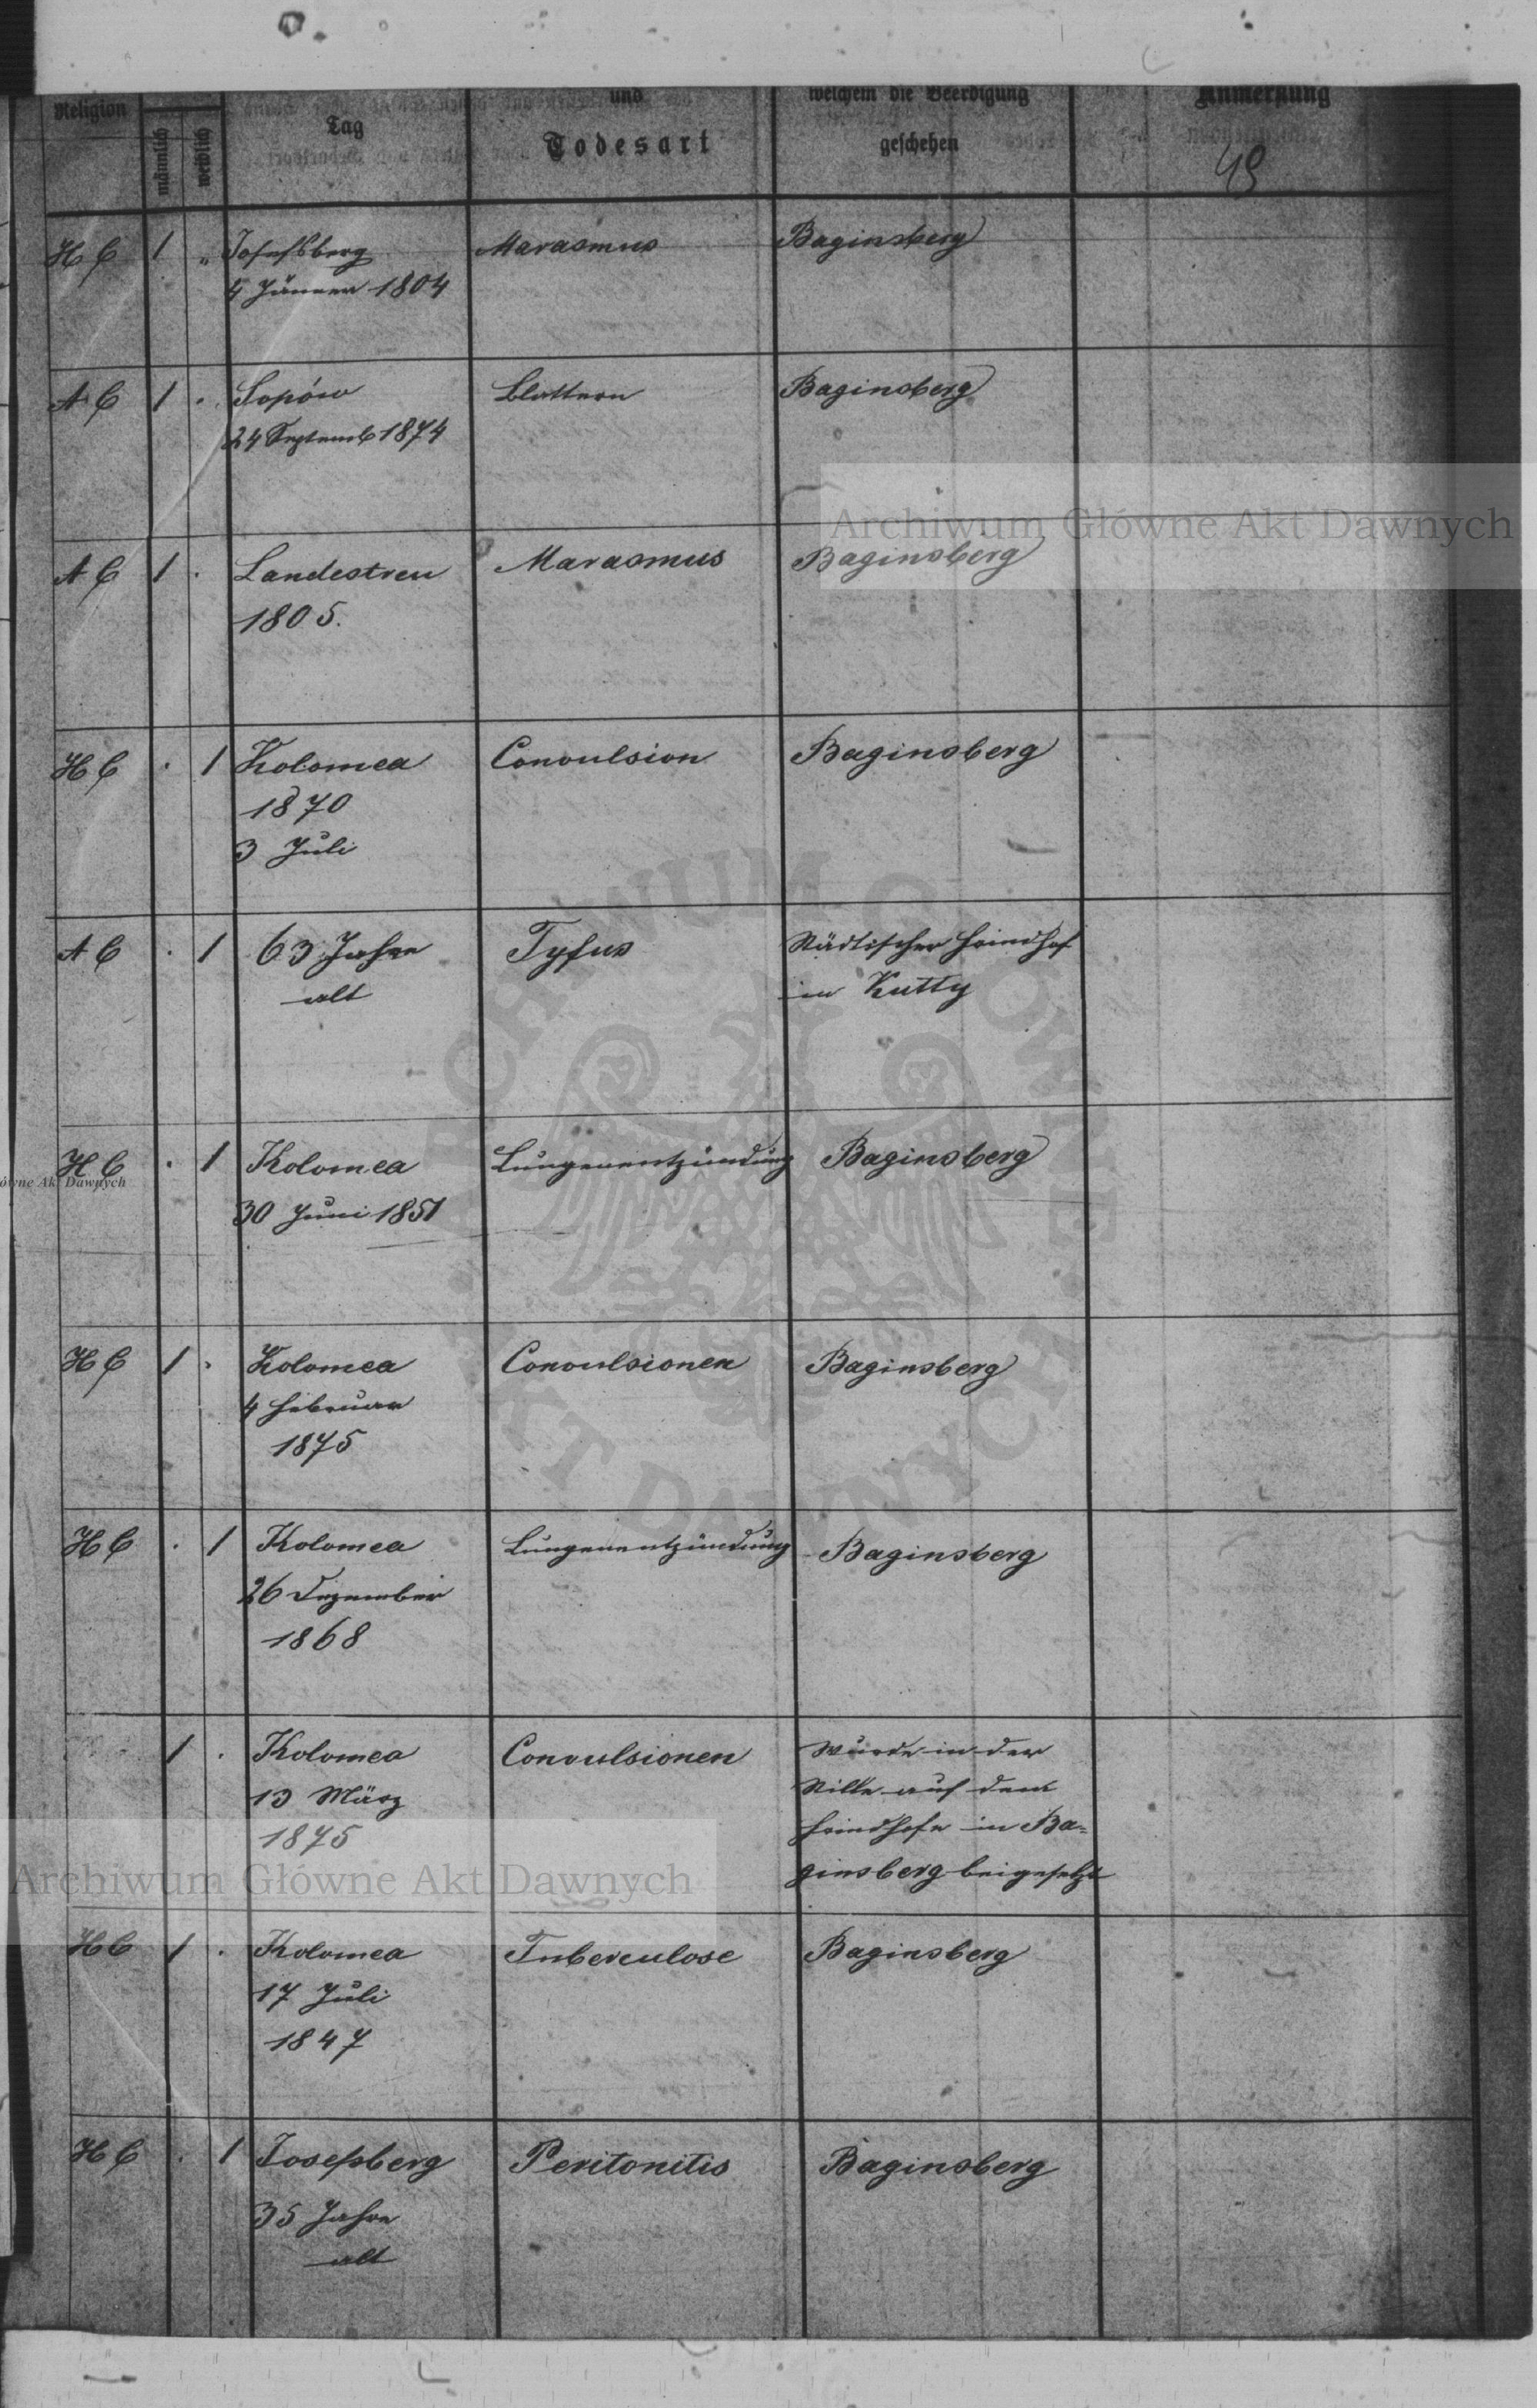 Religion
männlich
weiblich
Tag
und
Todesart
welchem die Beerdigung
geschehen
Anmerkung
49
HC 1 „ Josefsberg Marasmus Baginsberg
4 Jänner 1804
AC 1 . Sopów Blattern Baginsberg
24 Septemb 1874
Archiwum Główne Akt Dawnych
AC 1 . Landestreu Marasmus Baginsberg
1805.
HC . 1 Kolomea Convulsion Baginsberg
1870
3 Juli
AC . 1 63 Jahre Tyfus Städtischer Friedhof
alt in Kutty
HC . 1 Kolomea Lungenentzündung Baginsberg
ówne Akt Dawnych
30 Juni 1851
HC 1 . Kolomea Convulsionen Baginsberg
4 Februar
1875
HC . 1 Kolomea Lungenentzündung Baginsberg
26 Dezember
1868
1 . Kolomea Convulsionen Wurde in der
13 März Stille auf dem
1875 Friedhofe in Ba-
ginsberg beigesetzt
Archiwum Główne Akt Dawnych
HC 1 . Kolomea Tuberculose Baginsberg
17 Juli
1847
HC . 1 Josepsberg Peritonitis Baginsberg
35 Jahre
alt
ARCHIWUM GŁÓWNE
AKT DAWNYCH